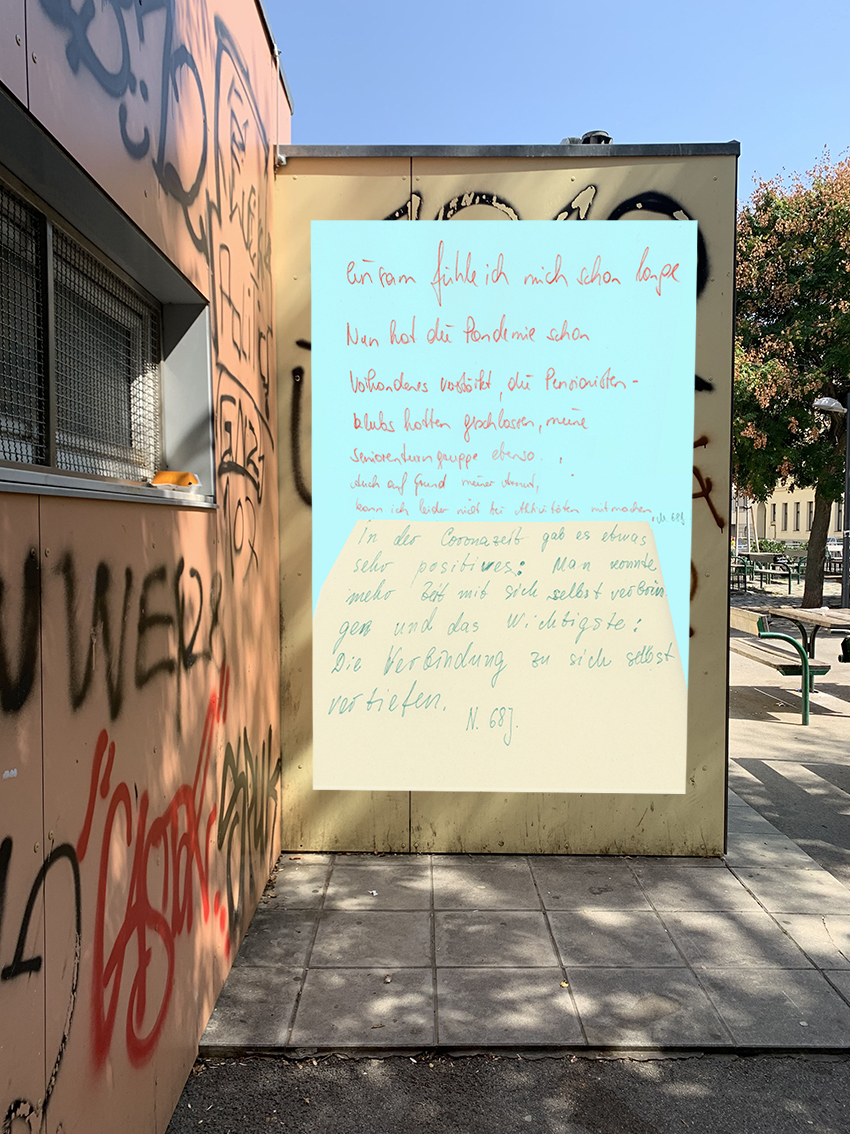 UWE
einsam fühle ich mich schon lange
Nun hat die Pandemie schon
Vorhandenes verstärkt, die Pensionisten-
klubs hatten geschlossen, meine
Seniorenturngruppe ebenso.
Auch auf Grund meiner Armut,
kann ich leider nicht bei Aktivitäten mitmachen
68J
In der Coronazeit gab es etwas
sehr positives: Man konnte
mehr Zeit mit sich selbst verbrin
gen und das Wichtigste:
Die Verbindung zu sich selbst
vertiefen.
N. 68J.